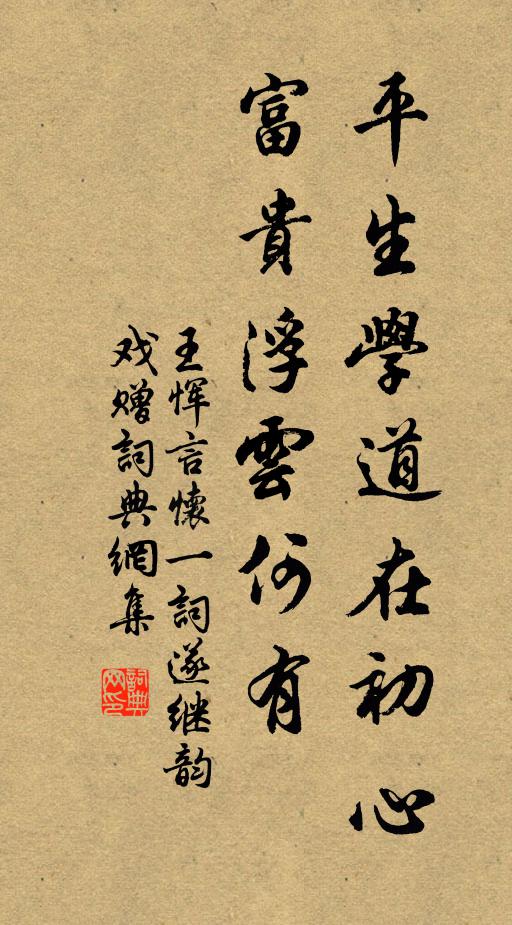 平生學道在初心
富貴浮雲何有
王恽言懷一詞遂继韵
戏赠詞典網集
詞典网印